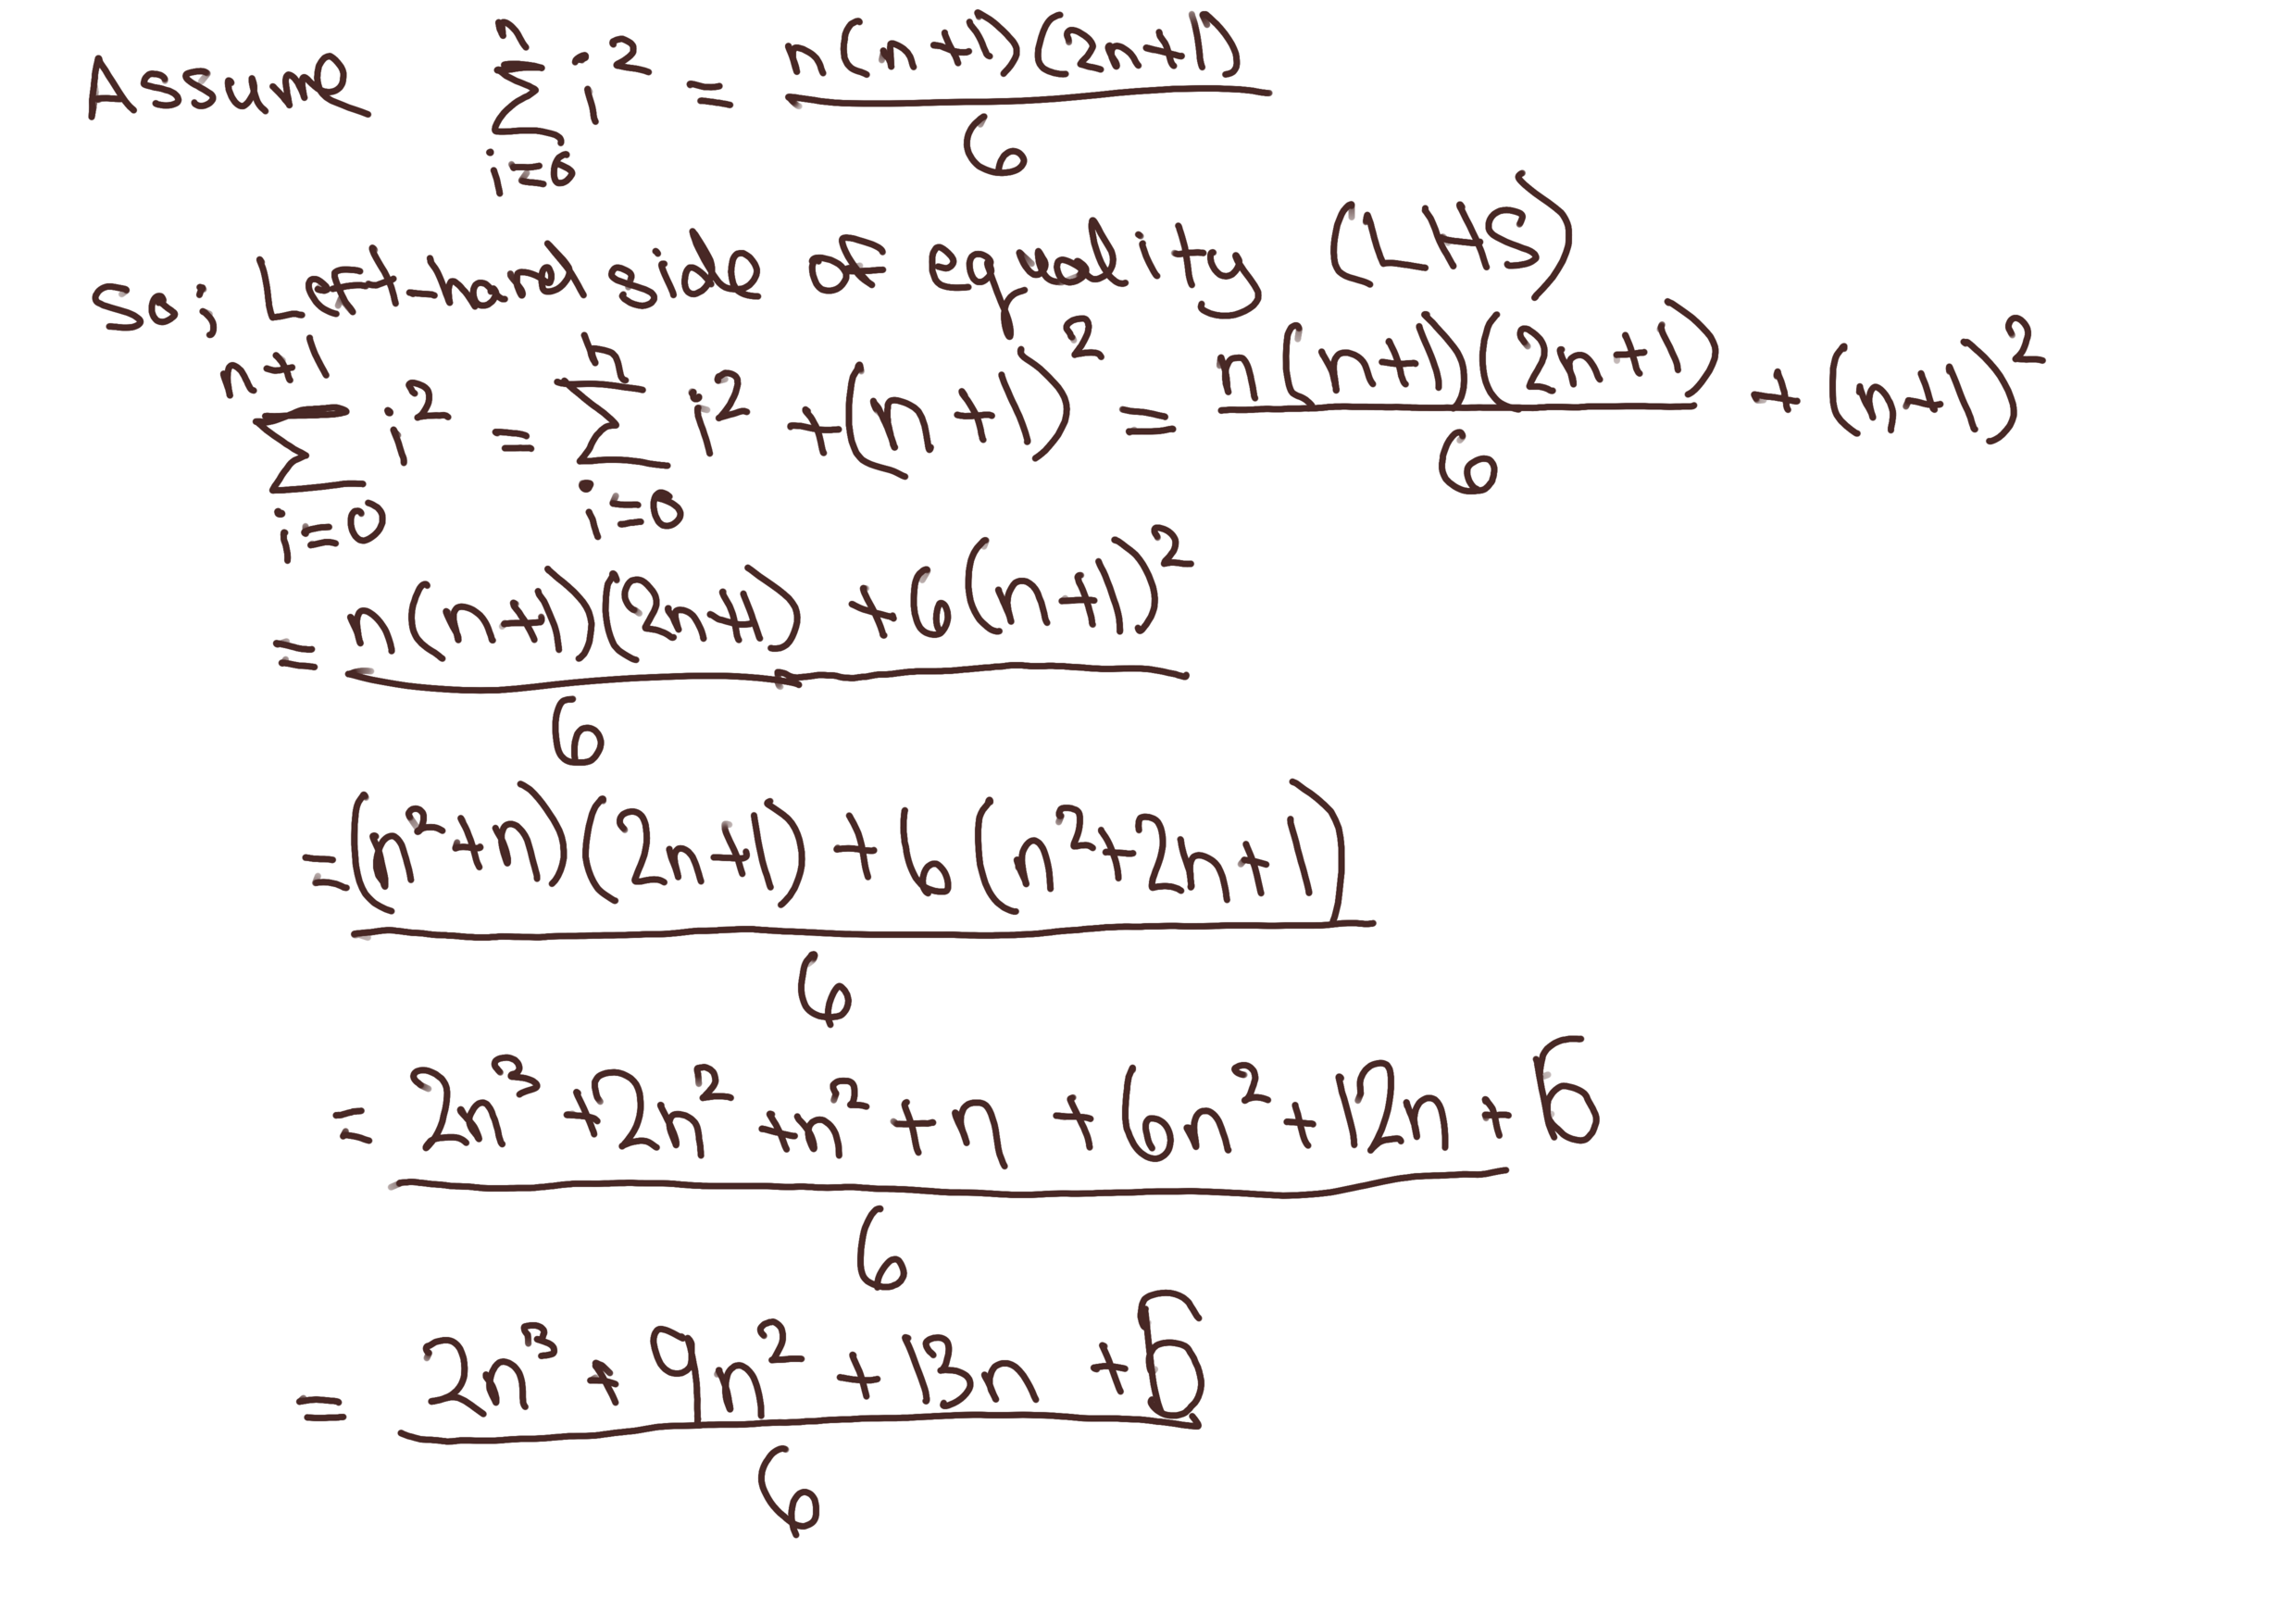 Assume \sum_{i=0}^{n} i^2 = \frac{n(n+1)(2n+1)}{6}
So; Left-hand side of equality (LHS)
\sum_{i=0}^{n+1} i^2 = \sum_{i=0}^{n} i^2 + (n+1)^2 = \frac{n(n+1)(2n+1)}{6} + (n+1)^2
= \frac{n(n+1)(2n+1) + 6(n+1)^2}{6}
= \frac{(n^2+n)(2n+1) + 6(n^2+2n+1)}{6}
= \frac{2n^3 + 2n^2 + n^2 + n + 6n^2 + 12n + 6}{6}
= \frac{2n^3 + 9n^2 + 13n + 6}{6}